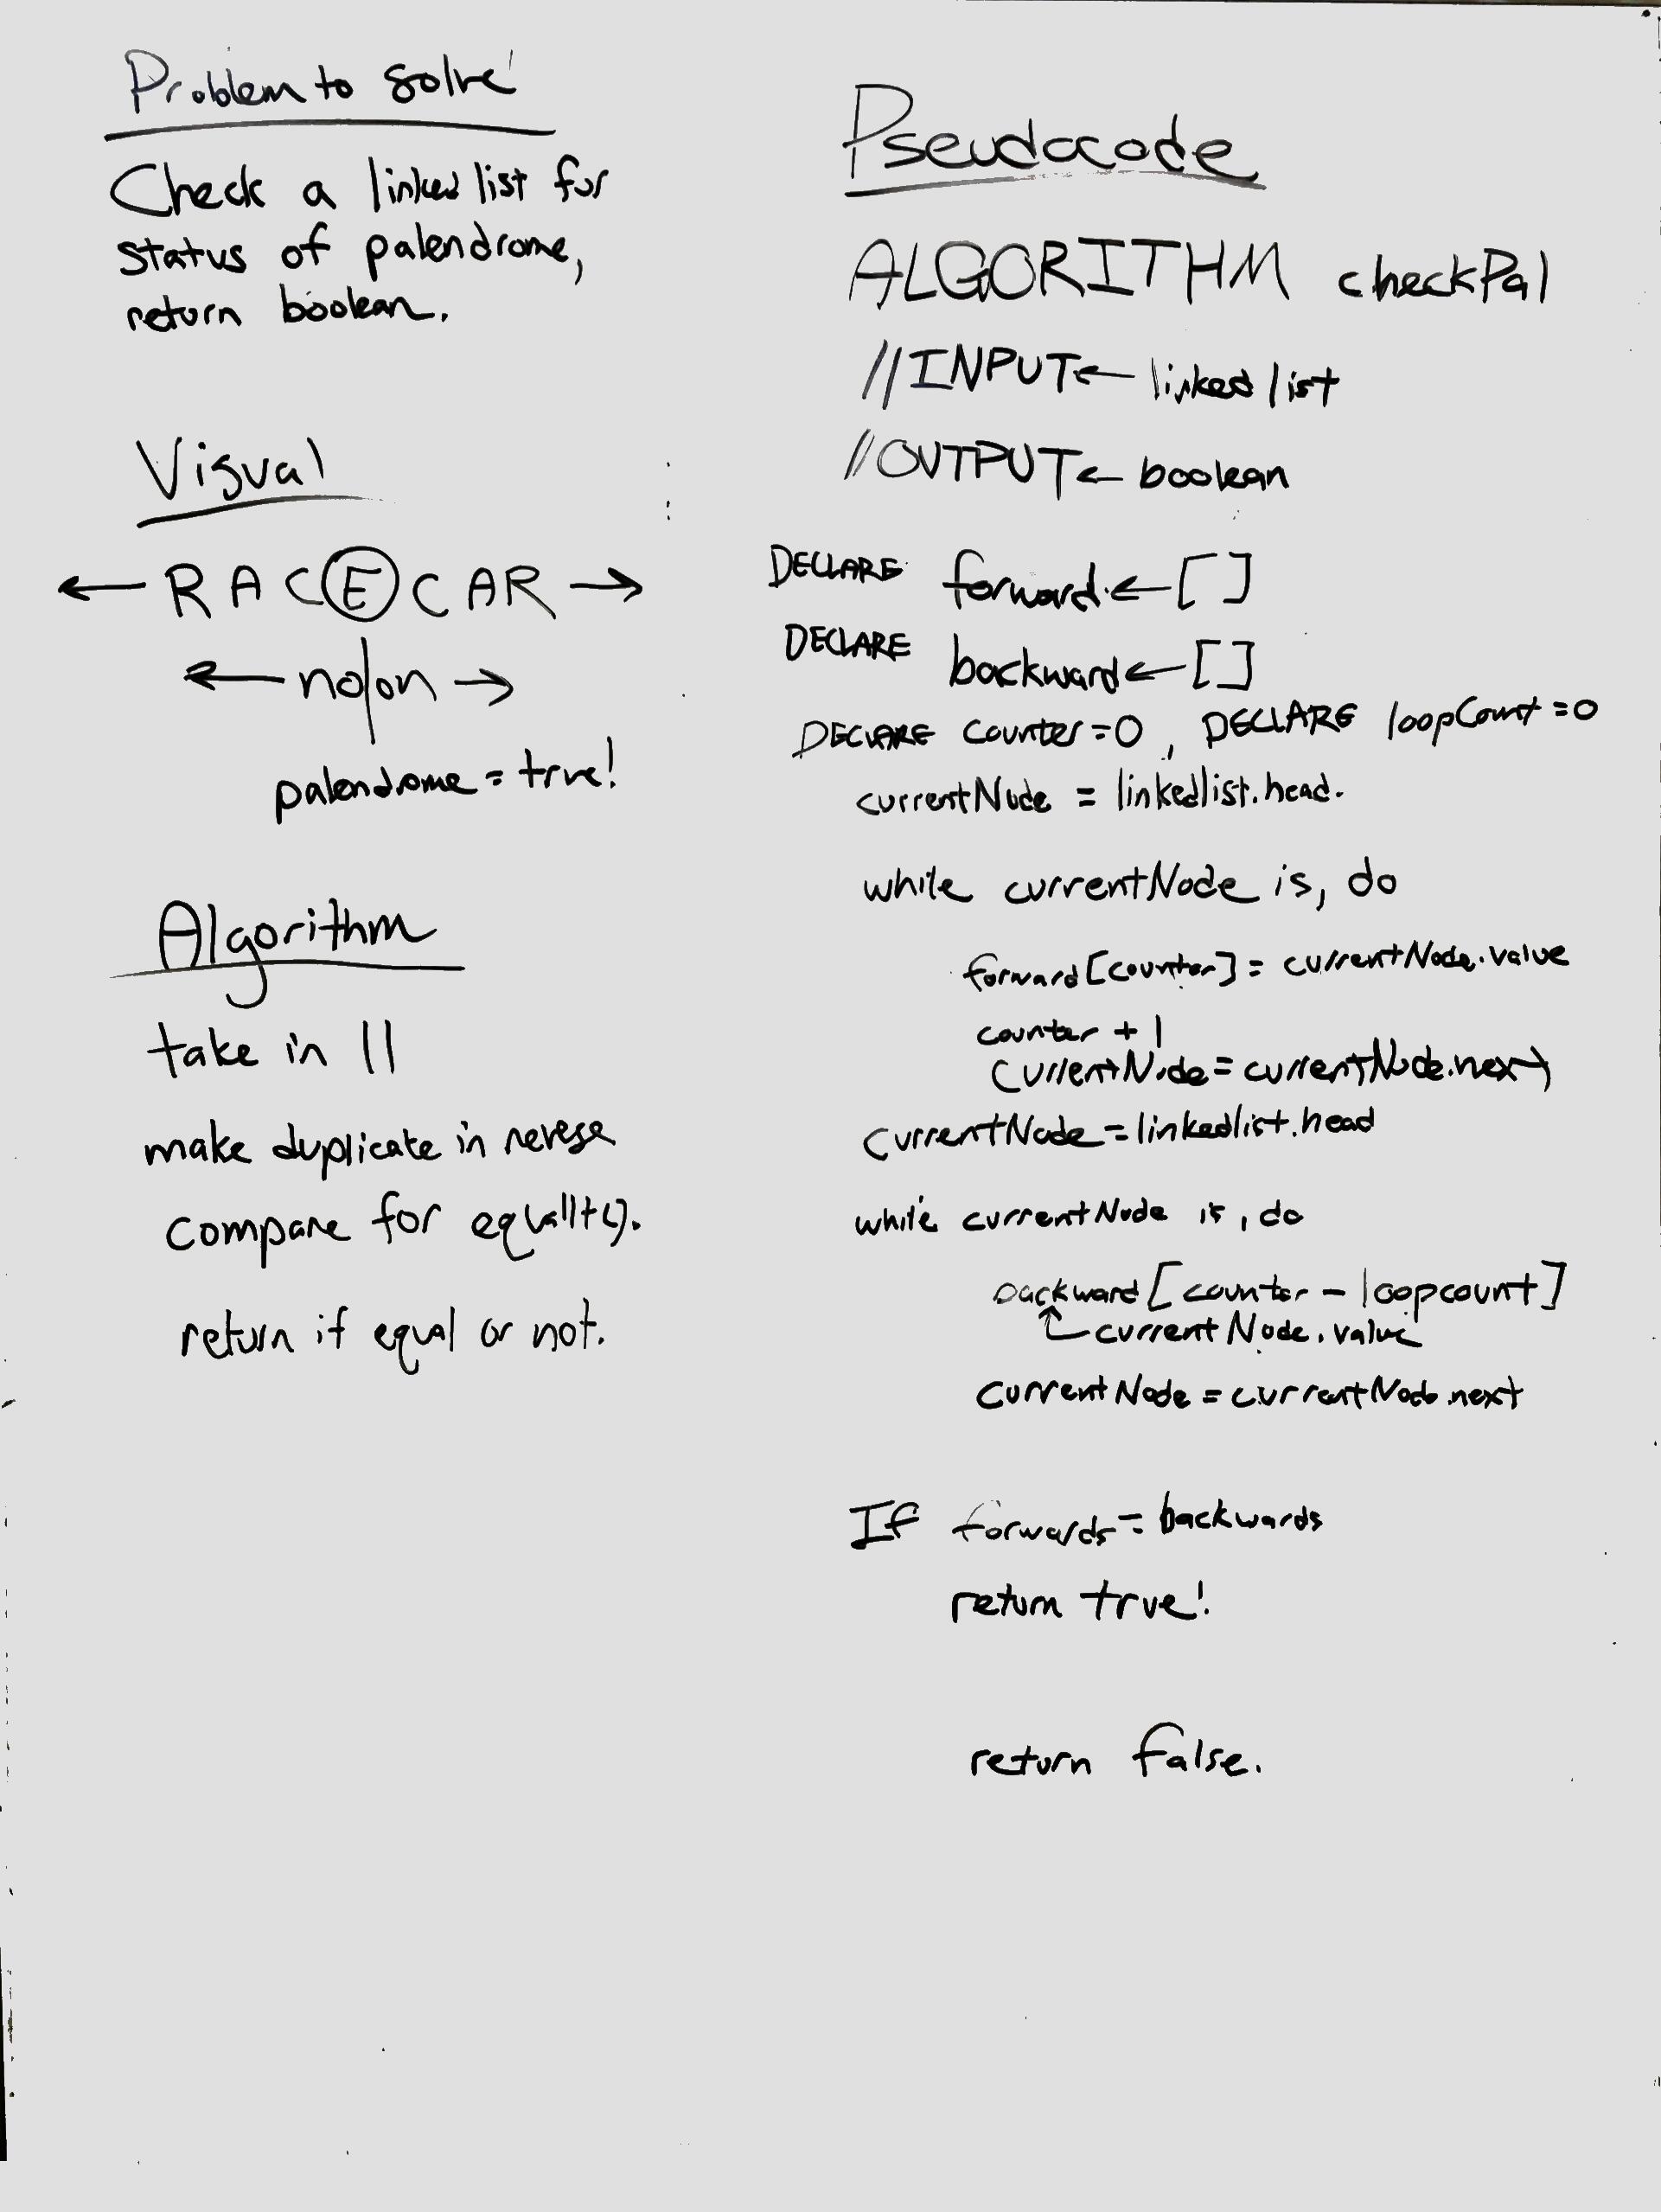 Problem to solve
Check a linked list for
status of palendrome,
return boolean.
Visual
← R A C E C A R →
← no|on →
palendrome = true!
Algorithm
take in ll
make duplicate in reverse
compare for equality.
return if equal or not.
Pseudocode
ALGORITHM checkPal
//INPUT ← linked list
//OUTPUT ← boolean
DECLARE forward ← []
DECLARE backward ← []
DECLARE counter = 0, DECLARE loopCount = 0
currentNode = linkedlist.head.
while currentNode is, do
forward[counter] = currentNode.value
counter + 1
currentNode = currentNode.next
currentNode = linkedlist.head
while currentNode is, do
backward[counter - loopcount]
↑ currentNode.value
currentNode = currentNode.next
If forwards = backwards
return true!
return false.